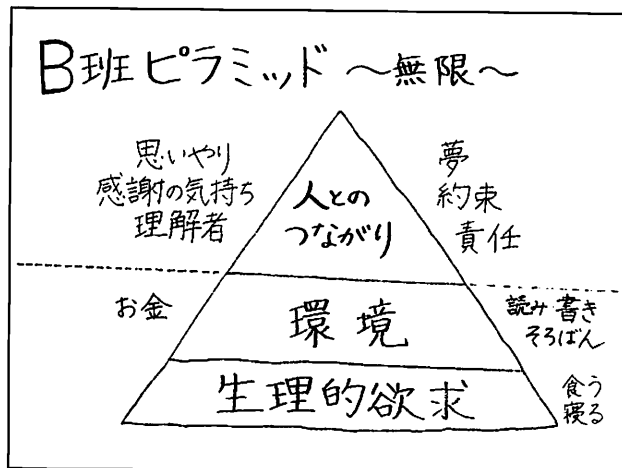 B班ピラミッド ～無限～
思いやり
感謝の気持ち
理解者
人との
つながり
夢
約束
責任
お金
環境
読み書き
そろばん
生理的欲求
食う
寝る